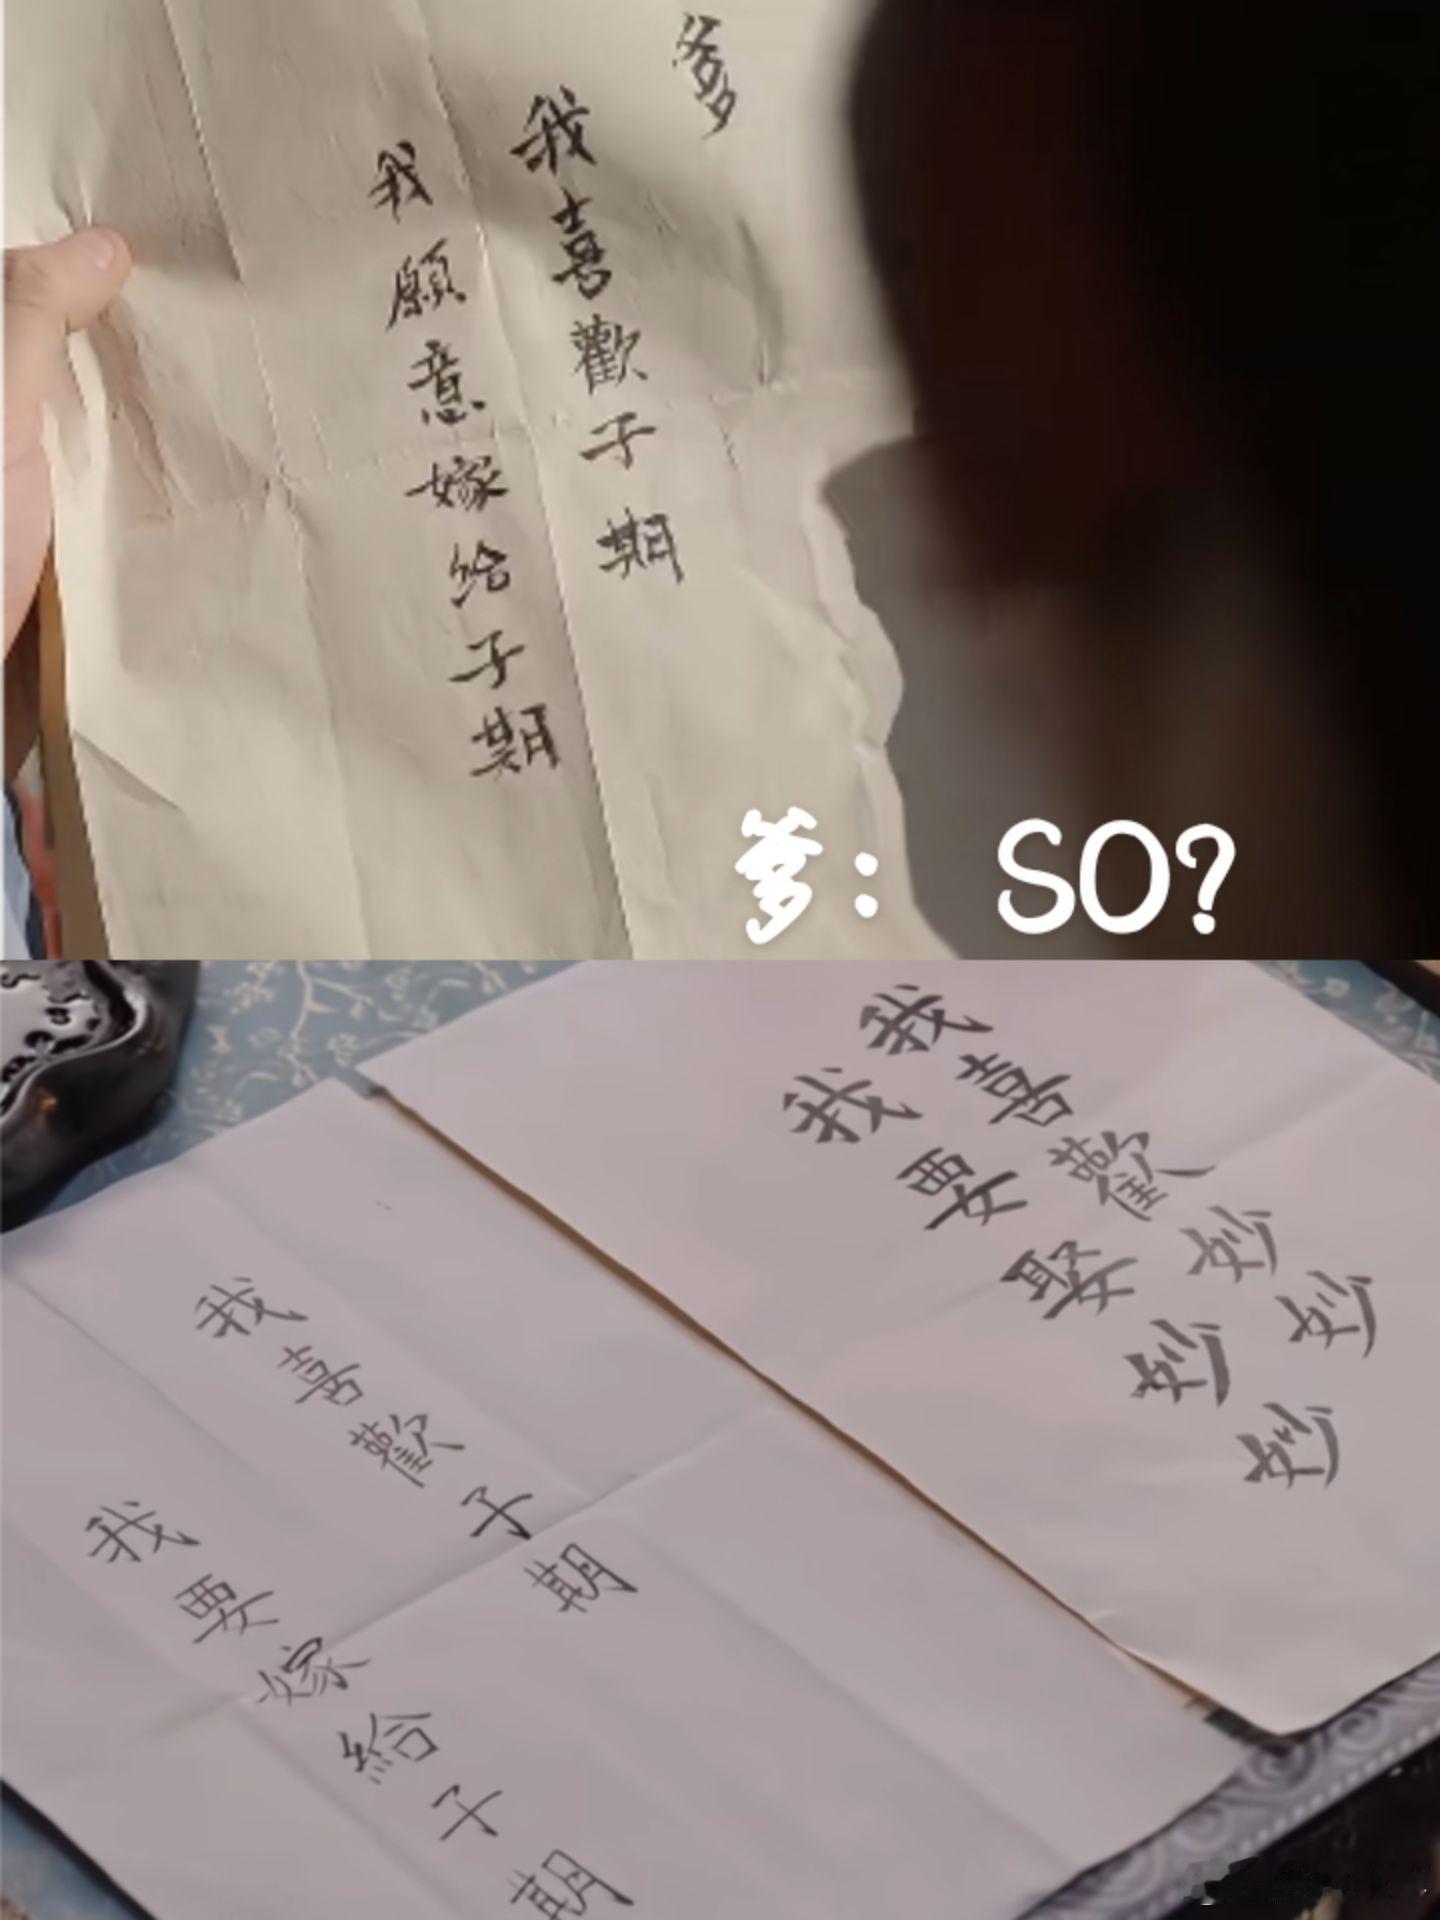 爹
我喜歡子期
我願意嫁给子期
爹：SO?
我喜歡妙妙
我要娶妙妙
我喜歡子期
我要嫁給子期